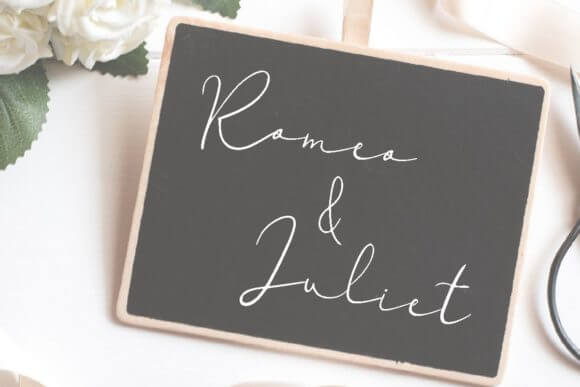 Romeo
&
Juliet